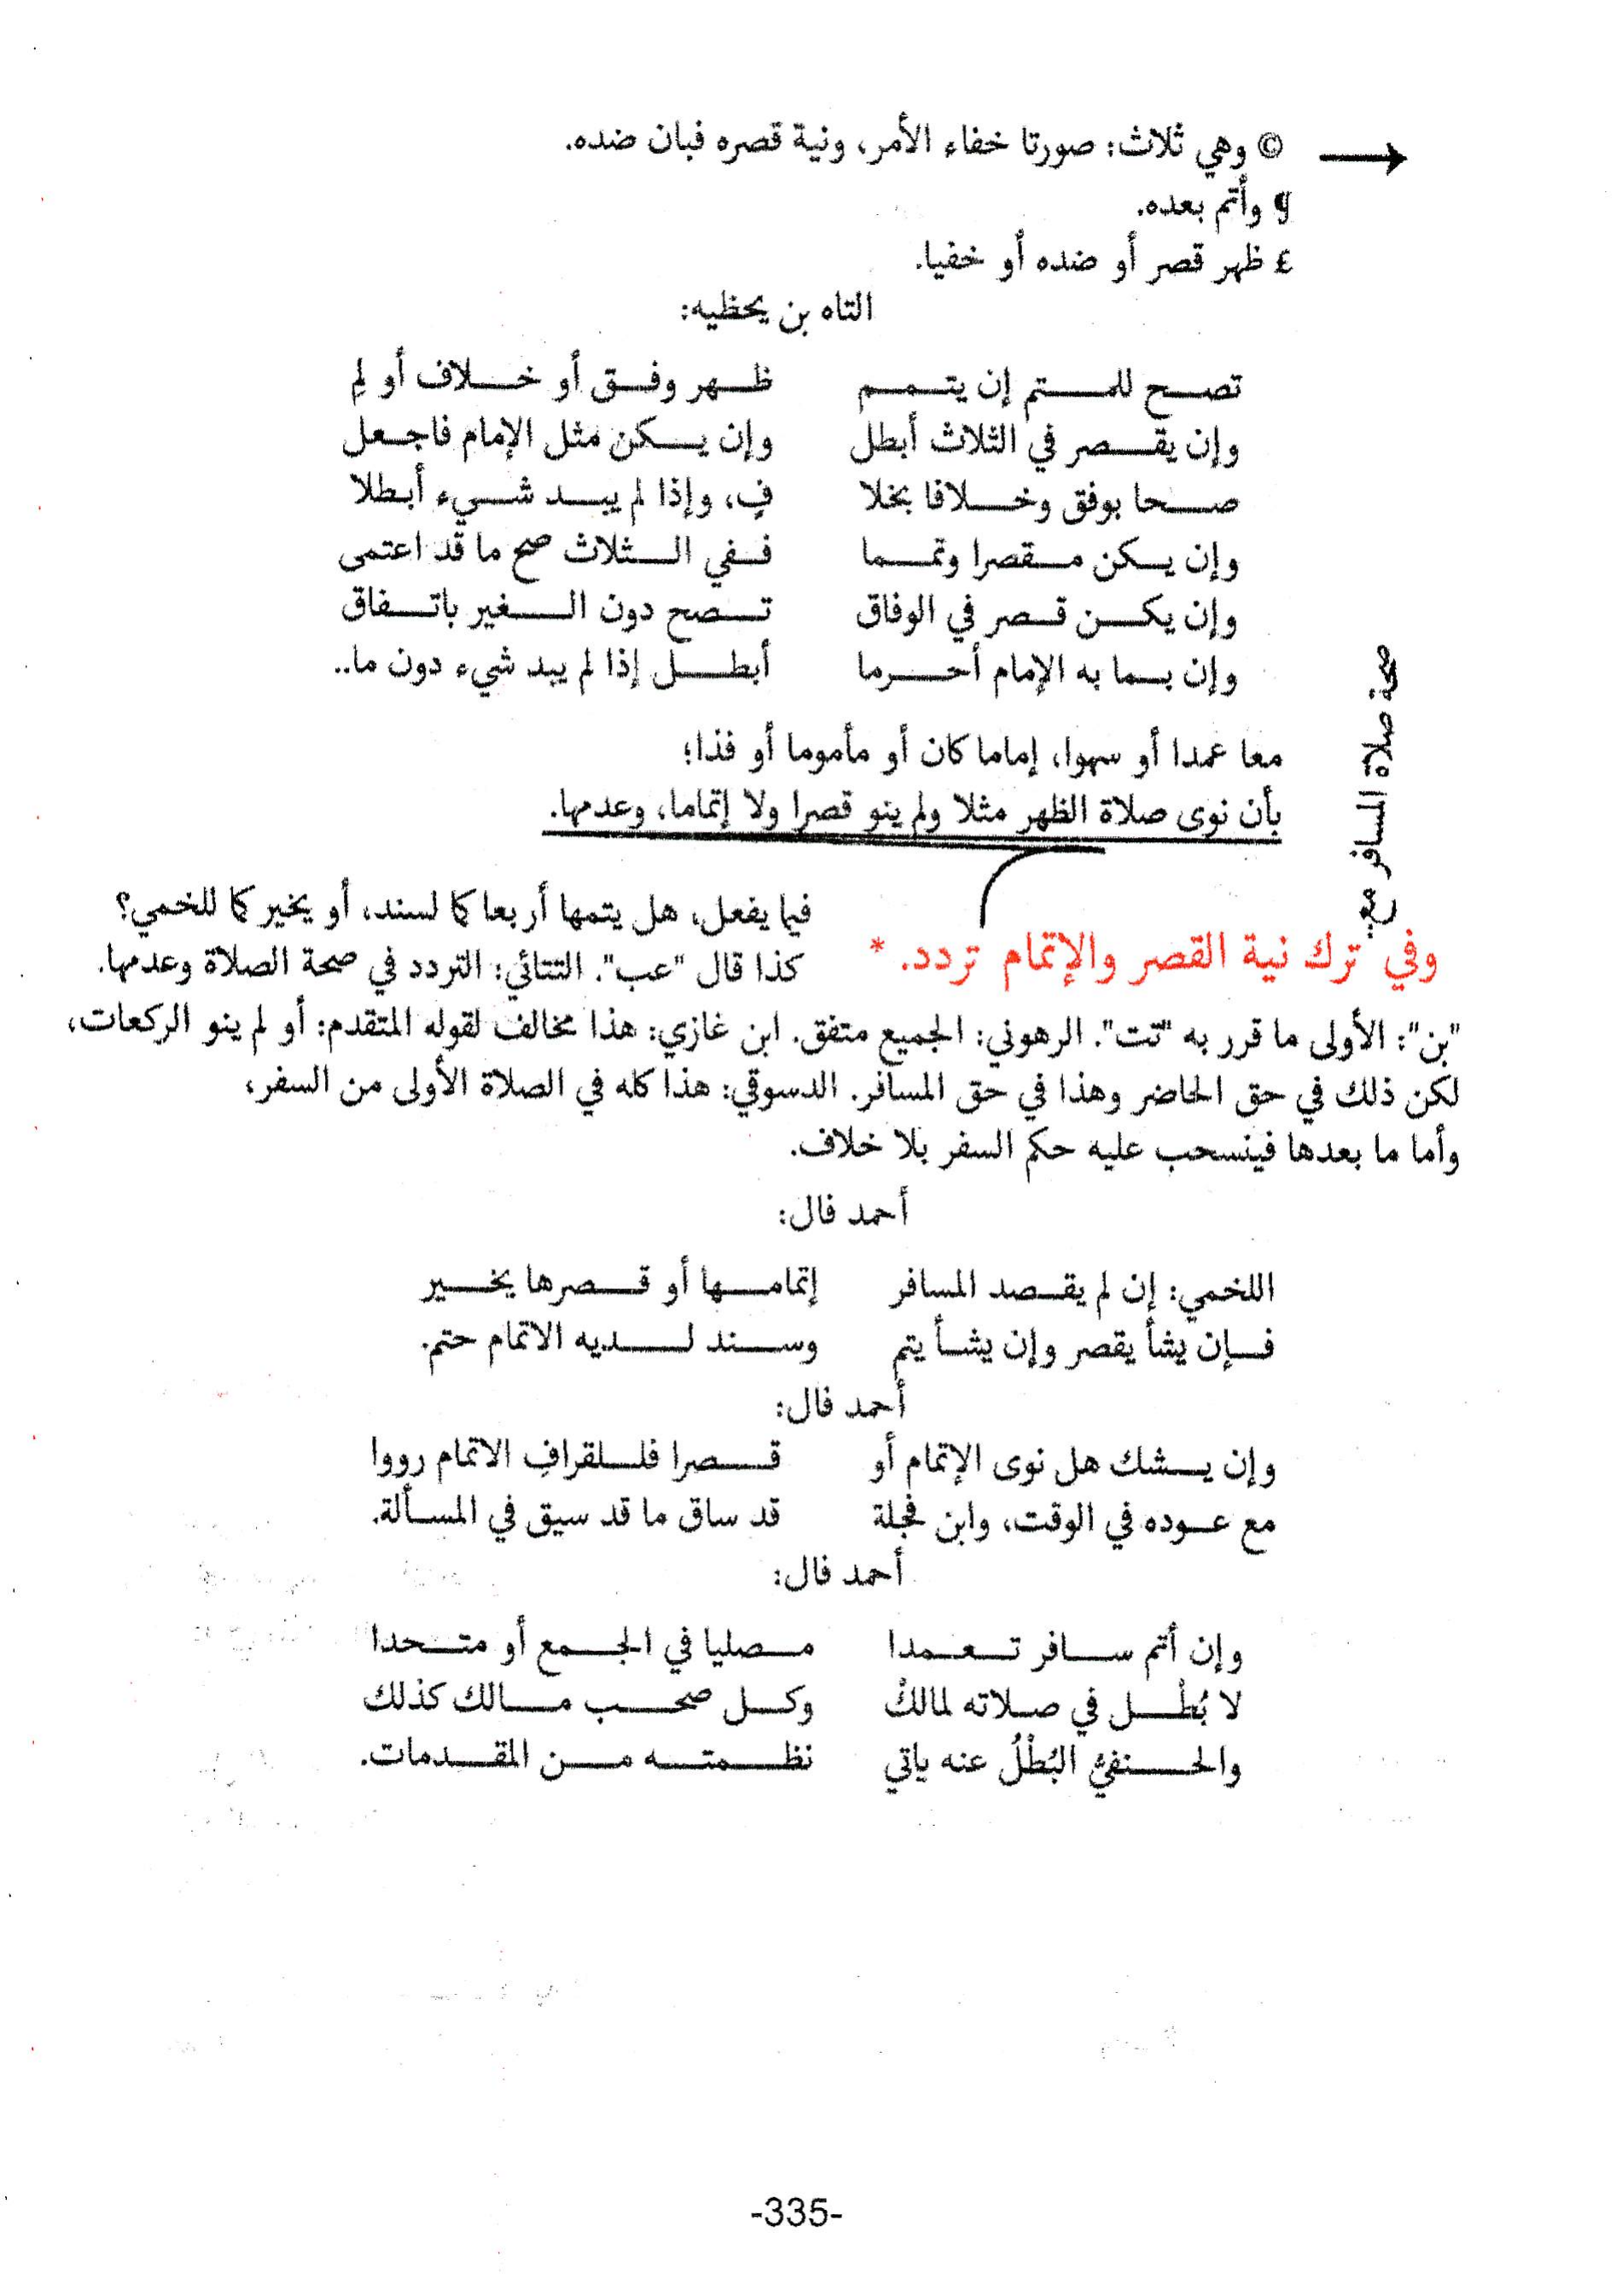 © وهي ثلاث: صورتا خفاء الأمر، ونية قصره فبان ضده.
¶ وأتم بعده.
£ ظهر قصر أو ضده أو خفيا.
التاه بن يحظيه:
تصح للمتم إن يتمم ظهر وفق أو خلاف أو لِمِ
وإن يقصر في الثلاث أبطل وإن يكن مثل الإمام فاجعل
صحا بوفق وخلافا بخلا فٍ، وإذا لم يبد شيء أبطلا
وإن يكن مقصرا وتمما ففي الثلاث صح ما قد اعتمى
وإن يكن قصر في الوفاق تصح دون الغير باتفاق
وإن بما به الإمام أحرما أبطل إذا لم يبد شيء دون ما..
صحة صلاة المسافر مع..
معا عمدا أو سهوا، إماما كان أو مأموما أو فذا؛
بأن نوى صلاة الظهر مثلا ولم ينو قصرا ولا إتماما، وعدمها.
فيما يفعل، هل يتمها أربعا كما لسند، أو يخير كما للخمي؟
وفي ترك نية القصر والإتمام تردد. *
كذا قال "عب". التتائي: التردد في صحة الصلاة وعدمها.
"بن": الأولى ما قرر به "تت". الرهوني: الجميع متفق. ابن غازي: هذا مخالف لقوله المتقدم: أو لم ينو الركعات،
لكن ذلك في حق الحاضر وهذا في حق المسافر. الدسوقي: هذا كله في الصلاة الأولى من السفر،
وأما ما بعدها فينسحب عليه حكم السفر بلا خلاف.
أحمد فال:
اللخمي: إن لم يقصد المسافر إتمامها أو قصرها يخير
فإن يشأ يقصر وإن يشأ يتم وسند لديه الاتمام حتم.
أحمد فال:
وإن يشك هل نوى الإتمام أو قصرا فللقرافِ الاتمام رووا
مع عوده في الوقت، وابن فجلة قد ساق ما قد سيق في المسألة.
أحمد فال:
وإن أتم سافر تعمدا مصليا في الجمع أو متحدا
لا بُطْل في صلاته لمالكْ وكل صحب مالك كذلك
والحنفيُّ البُطْلُ عنه ياتي نظمته من المقدمات.
-335-